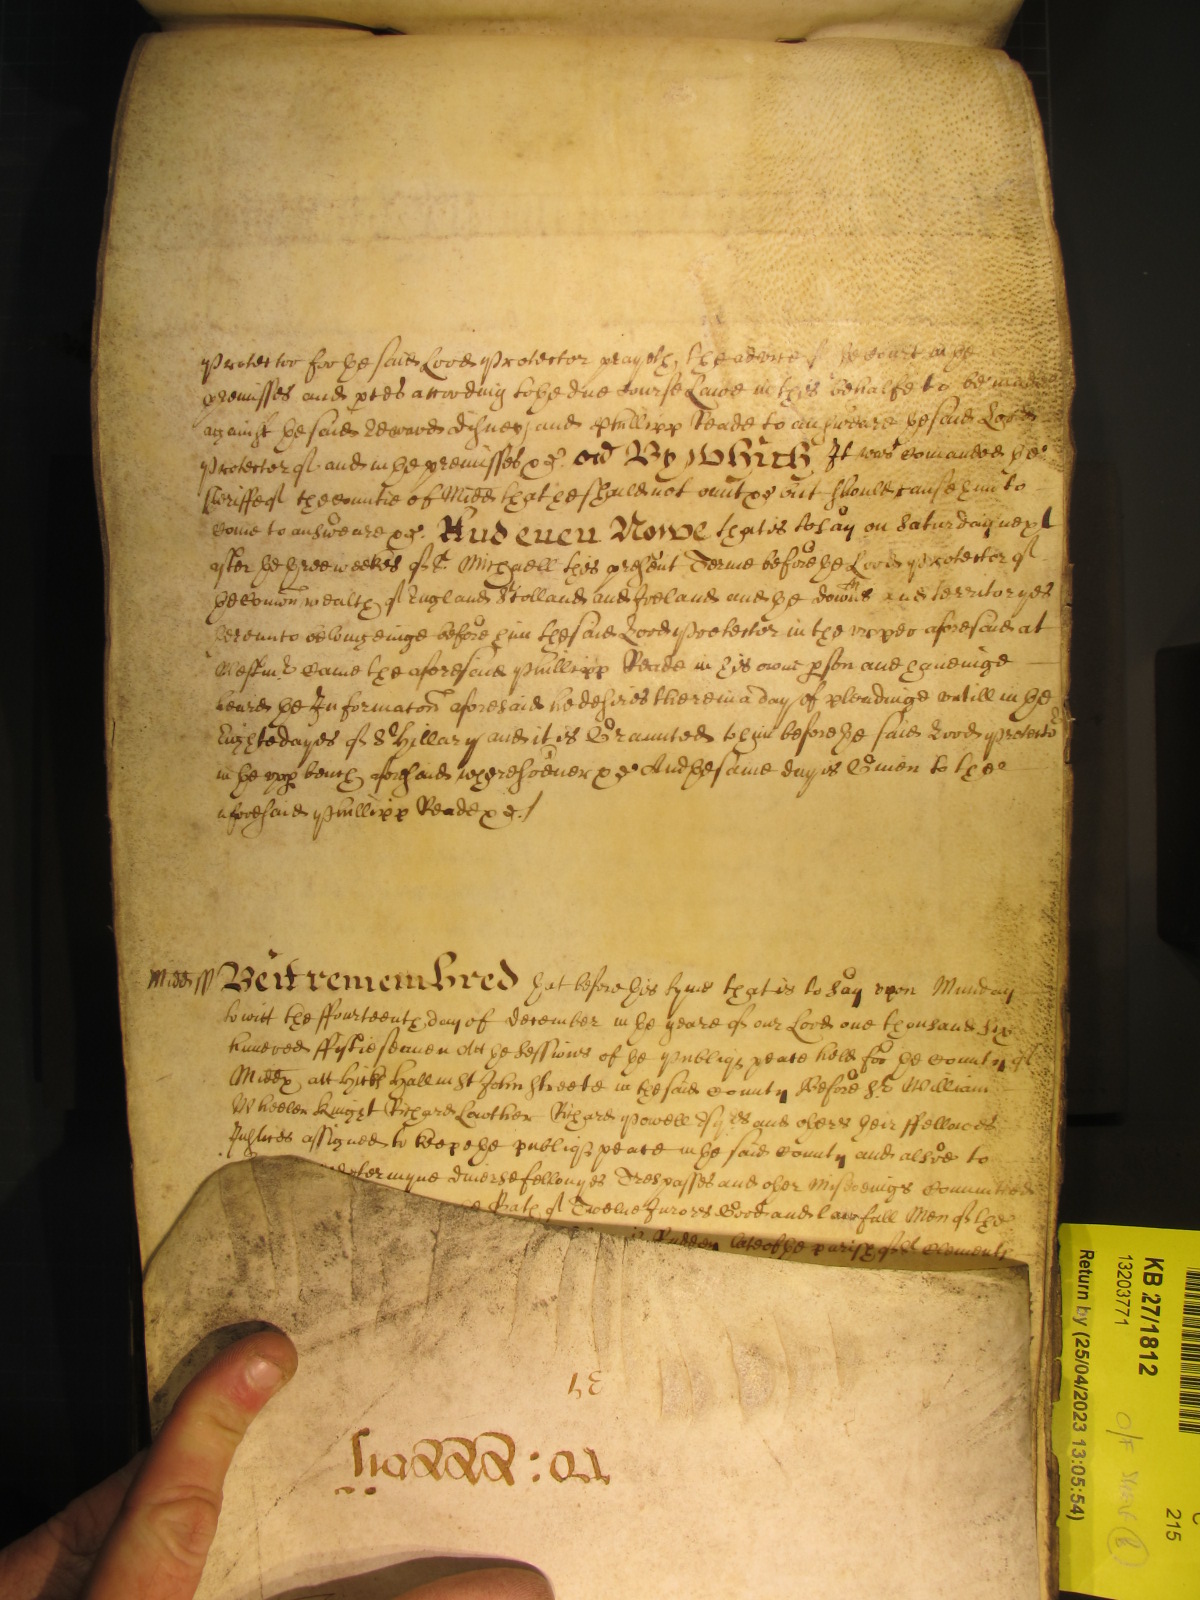 Protector for the said Lord Protector prayeth the advice of the Court in the
premisses and pces according to the due course Lawe in this behalfe to be made
against the said Edward Dichey and Phillipp Reade to answeare the said Lord
Protector of and in the premisses &c. By Which It was comanded the
Sheriffe of the countie of Midd that he should not omitt &c but should cause him to
come to answeare &c. And even Nowe that is to say on Saturday next
after the three weekes of St Michaell this present Terme before the Lord Protector of
the Comon wealth of England Scotland and Ireland and the dominns and territoryes
thereunto belongeinge before him the said Lord Protector in the upper aforesaid at
Westminstr came the aforesaid Phillipp Reade in his owne pson and haveinge
heard the Informacon aforesaid he desires therein a day of pleadinge untill in the
Eight dayes of St Hillary and it is Graunted to him before the said Lord Protector
in the upp bench aforesaid wheresoever &c And the same day is Given to the
aforesaid Phillipp Reade &c./
Midd ss Be it remembred that before this tyme that is to say upon Munday
to witt the ffourteenth day of december in the yeare of our Lord one thousand six
hundred ffiftie seaven Att the Sessions of the Publiq peace held for the County of
Middx att Hicks Hall in St John Streete in the said County Before Sr William
Wheeler Knight Richard Lowther Richard Powell Esqrs and others their ffellowes
Justices assigned to keepe the publiq peace in the said County and alsoe to
determyne diverse fellonyes Trespasses and other Misdeeings Committed
the Oath of Twelve Jurors Good and lawfull Men of the
late of the parish of St Clements
KB 27/1812
13203771
Return by (25/04/2023 13:05:54)
215